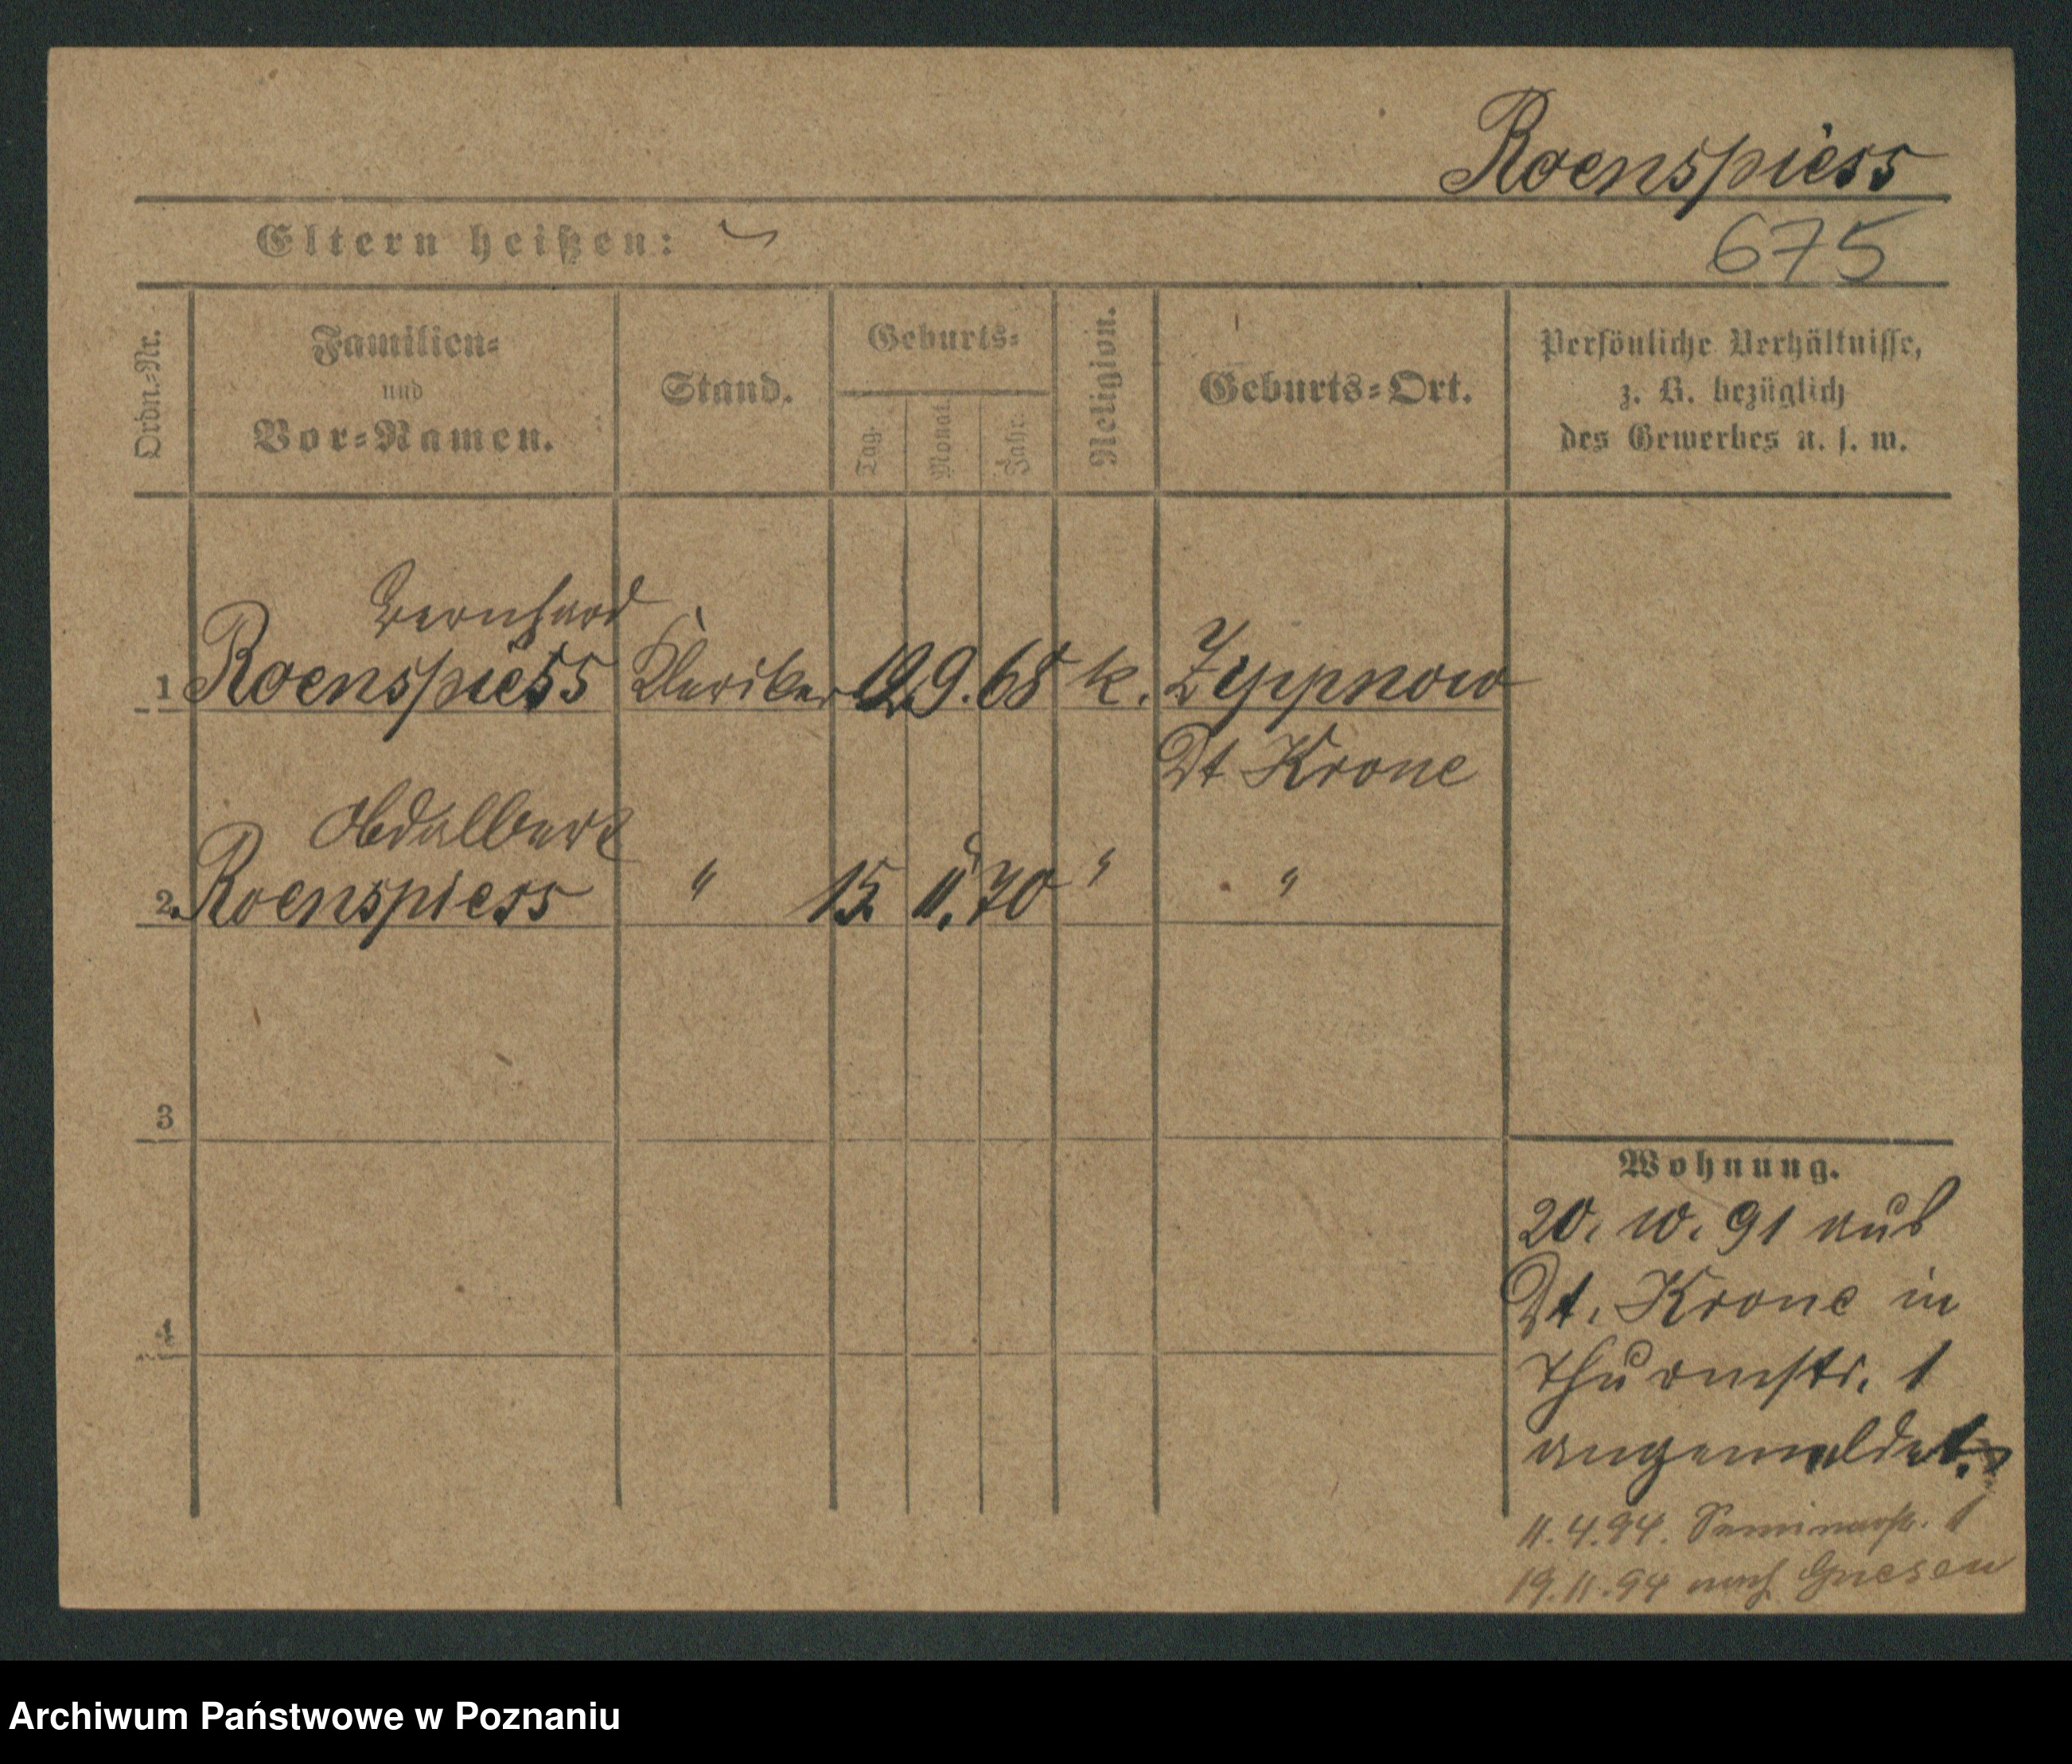 Roenspiess
Eltern heißen:
675
Ordn.-Nr.
Familien-
und
Vor-Namen.
Stand.
Geburts-
Tag.
Monat.
Jahr.
Religion.
Geburts-Ort.
Persönliche Verhältnisse,
z. B. bezüglich
des Gewerbes u. s. w.
Bernhard
1 Roenspiess Kleriker 12 9. 68 k. Zyppnow
Dt Krone
Adalbert
2. Roenspiess " 15. 11. 70 " "
3
4
Wohnung.
20. 10. 91 aus
Dt. Krone in
Thurmstr. 1
angemeldet.
11.4.94. Seminarstr. 1
19.11.94 nach Gnesen
Archiwum Państwowe w Poznaniu